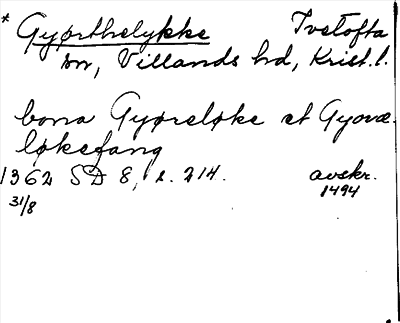 * Gyørthelykke Tvetofta
sn, Villands hd, Krist. l.
bona Gyøreløke et Gyoræ-
løkefang
1362 SD 8, s. 214. avskr.
31/8 1494